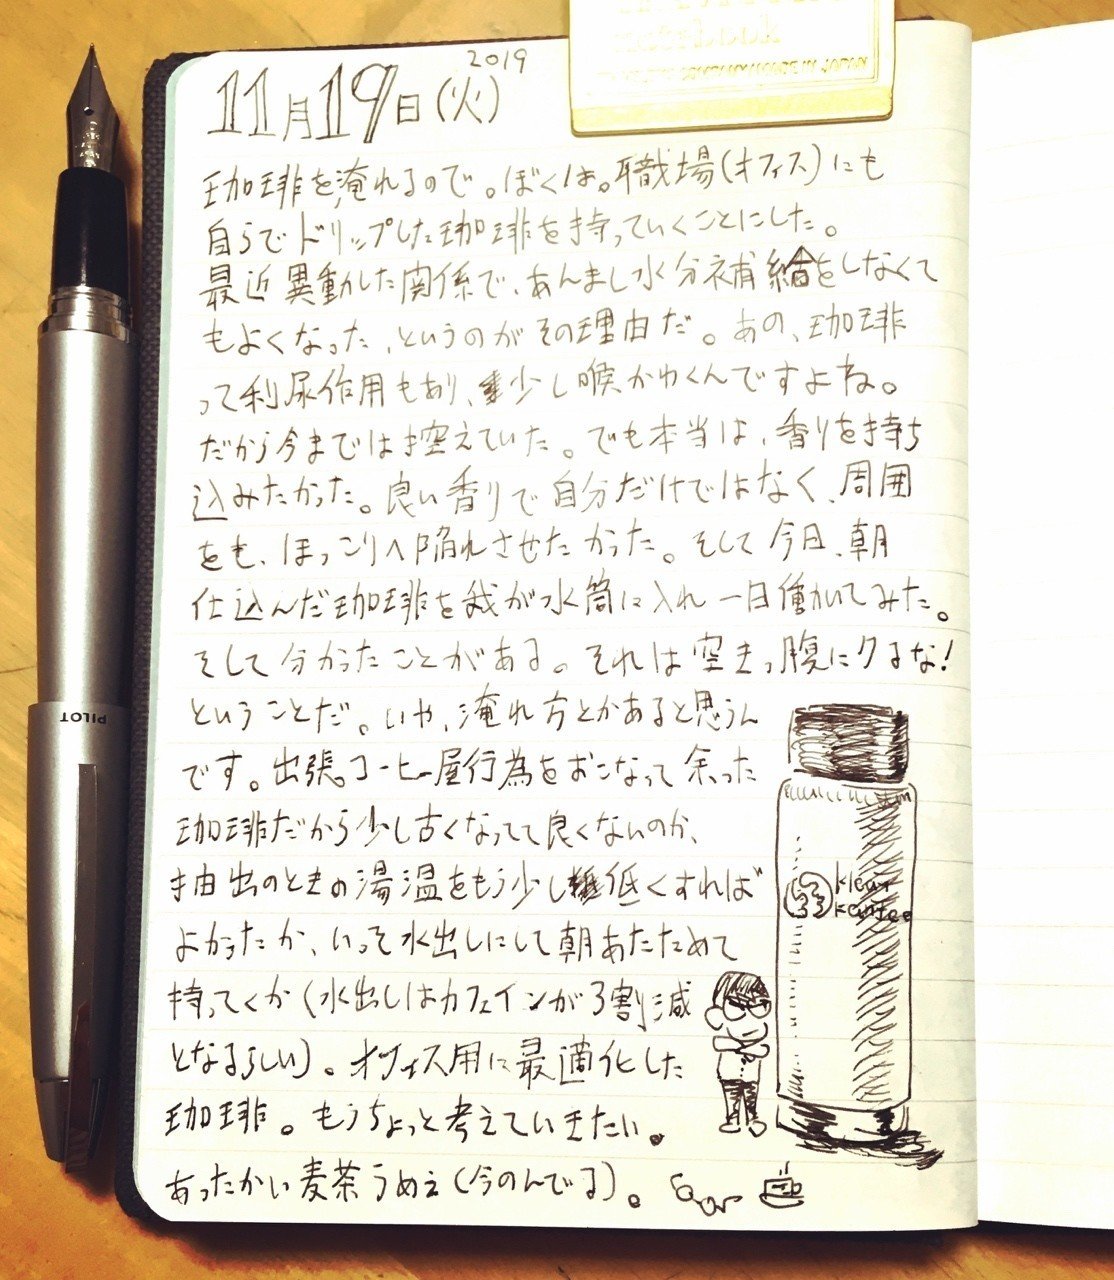 2019
11月19日(火)
珈琲を淹れるので。ぼくは。職場(オフィス)にも
自らでドリップした珈琲を持っていくことにした。
最近異動した関係で、あんまし水分補給をしなくて
もよくなった、というのがその理由だ。あの、珈琲
って利尿作用もあり、少し喉かわくんですよね。
だから今までは控えていた。でも本当は、香りを持ち
込みたかった。良い香りで自分だけではなく、周囲
をも、ほっこりへ陥れさせたかった。そして今日、朝
仕込んだ珈琲を我が水筒に入れ一日働いてみた。
そして分かったことがある。それは空きっ腹にクるな!
ということだ。いや、淹れ方とかあると思うん
です。出張。コーヒー屋行為をおこなって余った
珈琲だから少し古くなってて良くないのか、
抽出のときの湯温をもう少し低くすれば
よかったか、いっそ水出しにして朝あたためて
持ってくか(水出しはカフェインが3割減
となるらしい)。オフィス用に最適化した
珈琲。もうちょっと考えていきたい。
あったかい麦茶うめえ(今のんでる)。
klean
kanteen
PILOT
notebook
MADE IN JAPAN